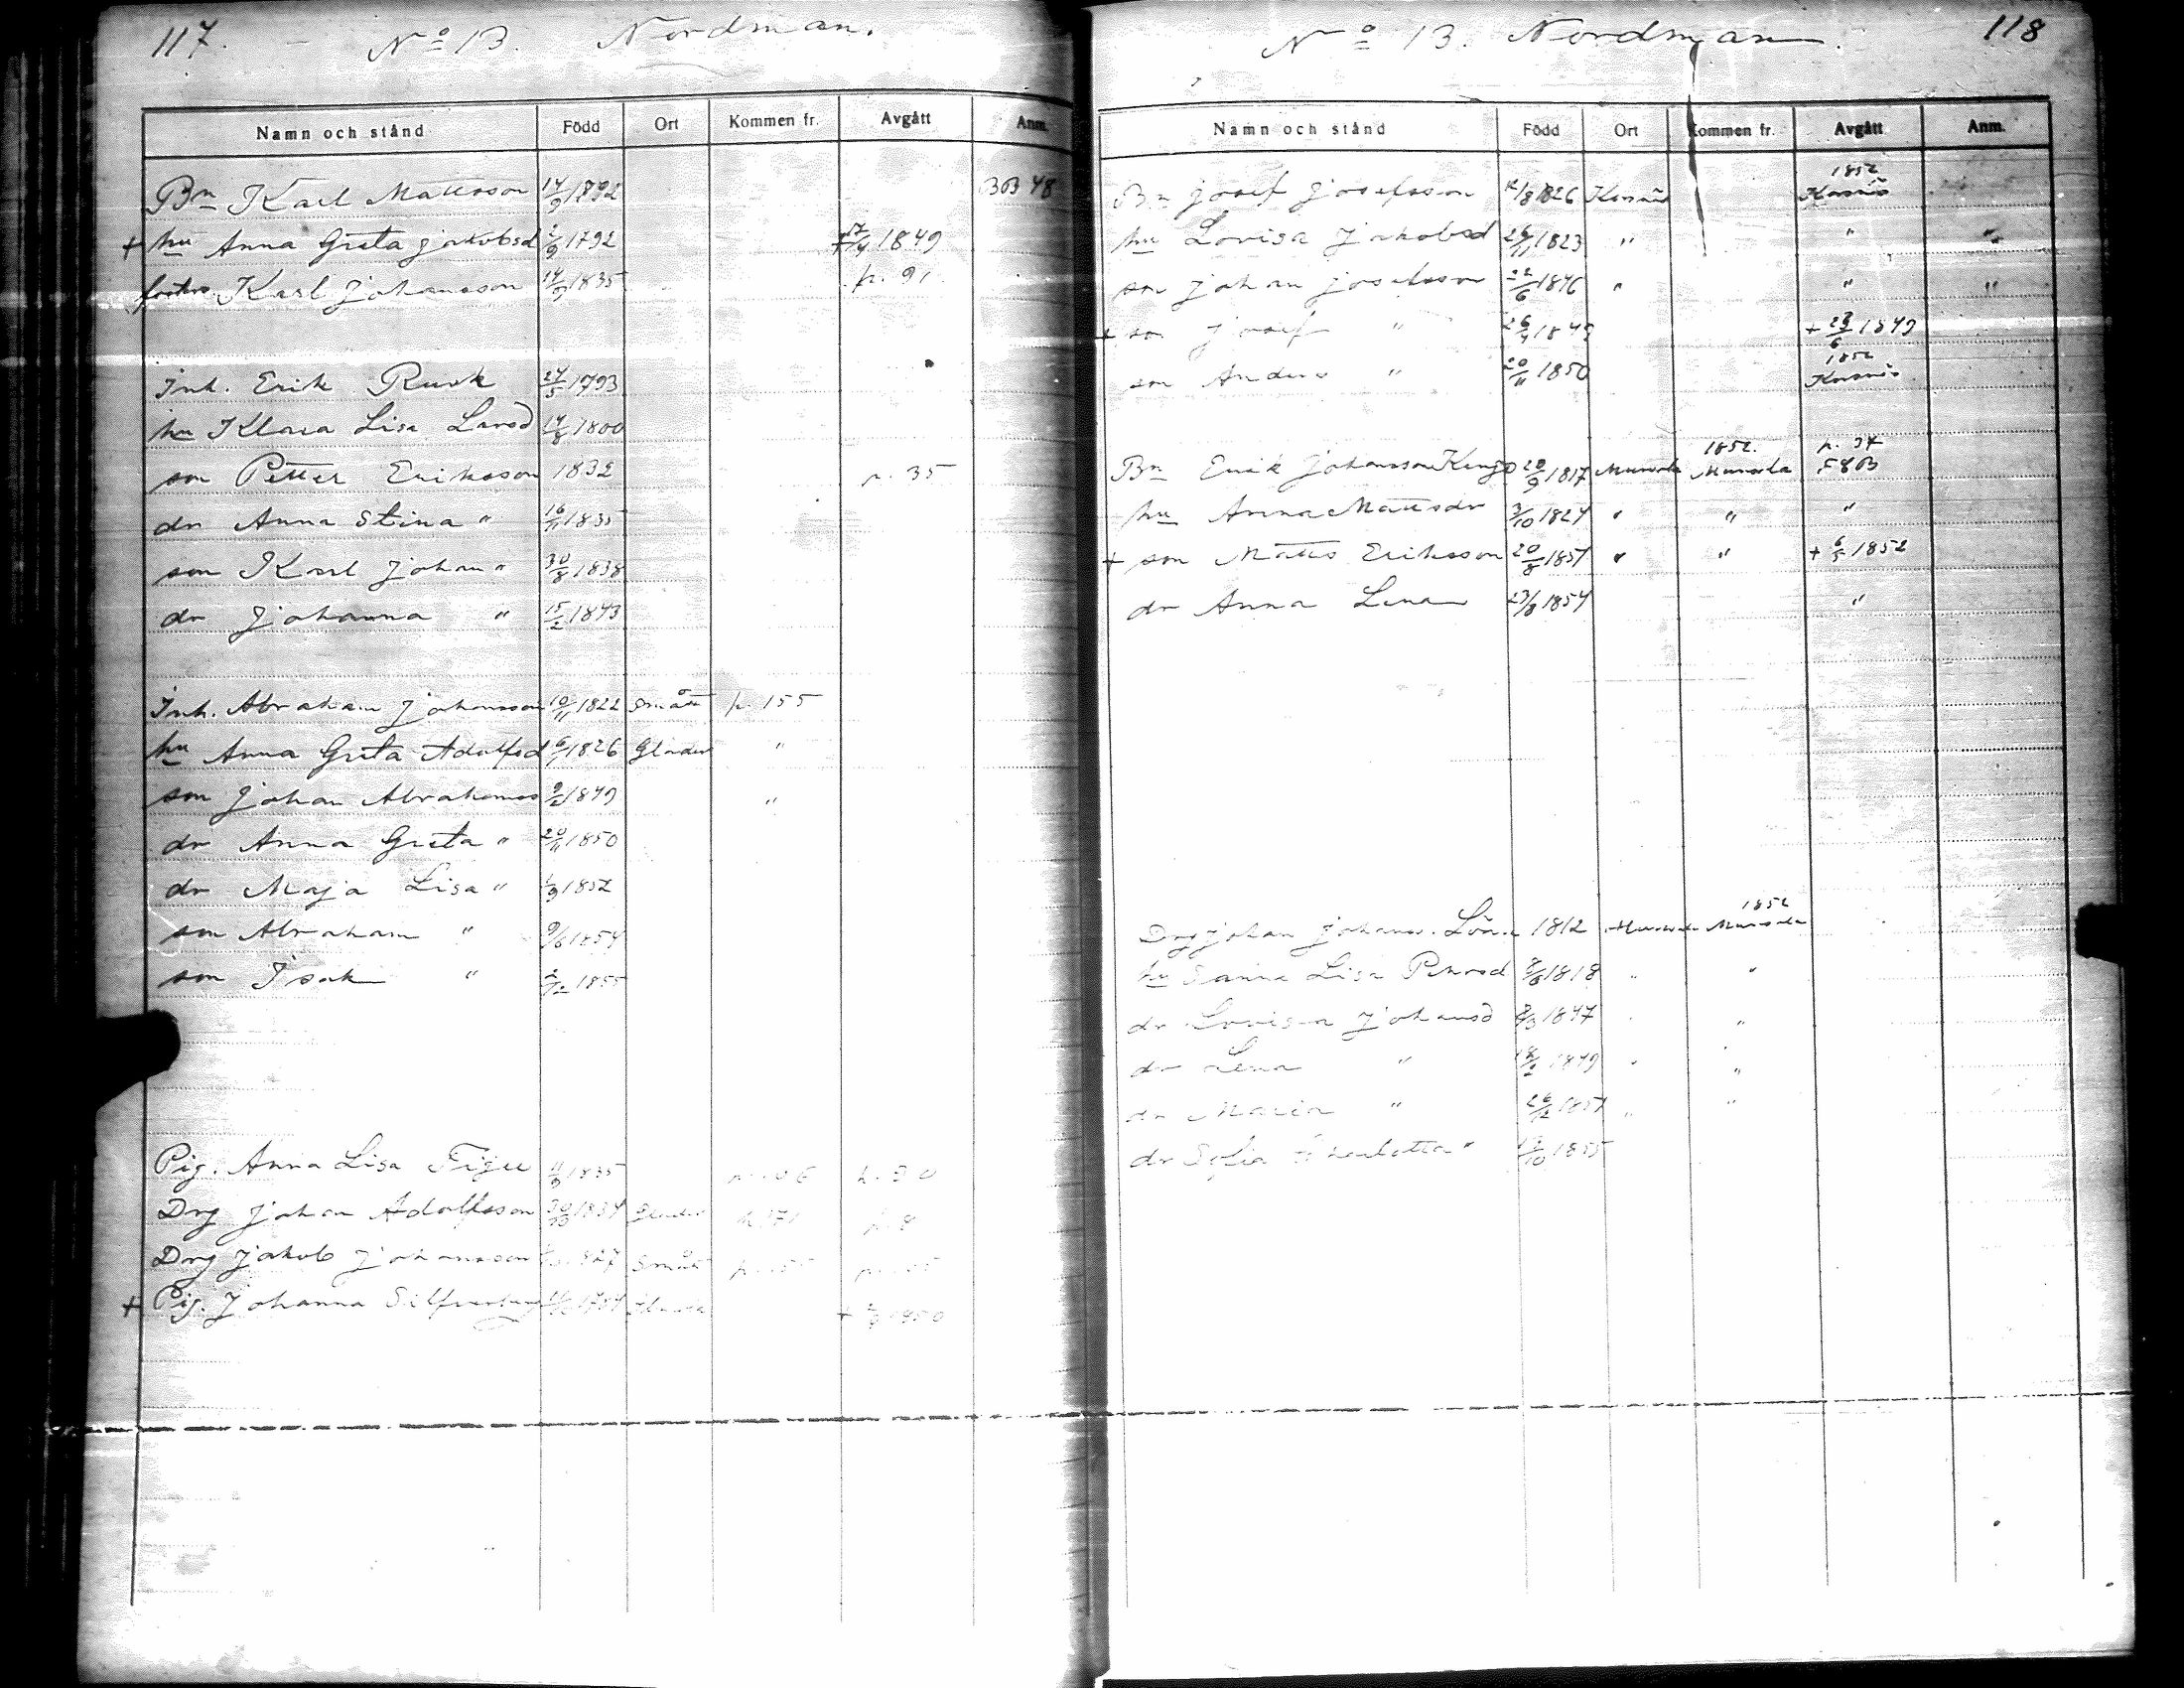 117. — No 13. Nordman.
Namn och stånd Född Ort Kommen fr. Avgått Anm.
Bn Karl Mattsson 14/9 1792 BB 48
+ hu Anna Greta Jakobsd 2/9 1792 + 17/4 1849
fosters. Karl Johansson 14/9 1835 p. 91
Inh. Erik Rusk 24/5 1793
hu Klara Lisa Larsd 14/8 1800
son Petter Eriksson 1832 p. 35
dr Anna Stina " 16/11 1835
son Karl Johan " 30/8 1838
dr Johanna " 15/2 1843
Inh. Abraham Johansson 10/11 1822 Smått p. 155
hu Anna Greta Adolfsd 6/1 1826 Glader "
son Johan Abrahamss 9/2 1849 "
dr Anna Greta " 20/11 1850
dr Maja Lisa " 1/9 1852
son Abraham " 9/6 1854
son Isak " 2/12 1855
Pig. Anna Lisa 1835
Drg Johan Adolfsson 30/10 1834 p. 171 p. 8
Drg Jakob Johansson Smått
+ Pig. Johanna
No 13. Nordman. 118
Namn och stånd Född Ort Kommen fr. Avgått Anm.
Bn Josef Josefsson 12/8 1826 Korsnäs 1852 Korsnäs
hu Lovisa Jakobsd 26/11 1823 " " "
son Johan Josefsson 22/6 1846 " " "
+ son Josef " 26/4 1849 + 23/6 1849
son Anders " 20/11 1850 1852 Korsnäs
Bn Erik Johansson Kengo 20/9 1817 Munsala 1852. Munsala p. 34 FBB
hu Anna Mattsdr 3/10 1824 " " "
+ son Matts Eriksson 20/8 1851 " " + 6/5 1852
dr Anna Lena 23/8 1854 "
Drg Johan Johanss. 1812 Munsala 1852 Munsala
hu Sanna Lisa Petersd 8/6 1818 " "
dr Lovisa Johansd 8/3 1847 " "
dr Lena " 1849 " "
dr Maria " 26/12 1851 " "
dr Sofia Charlotta " 1855